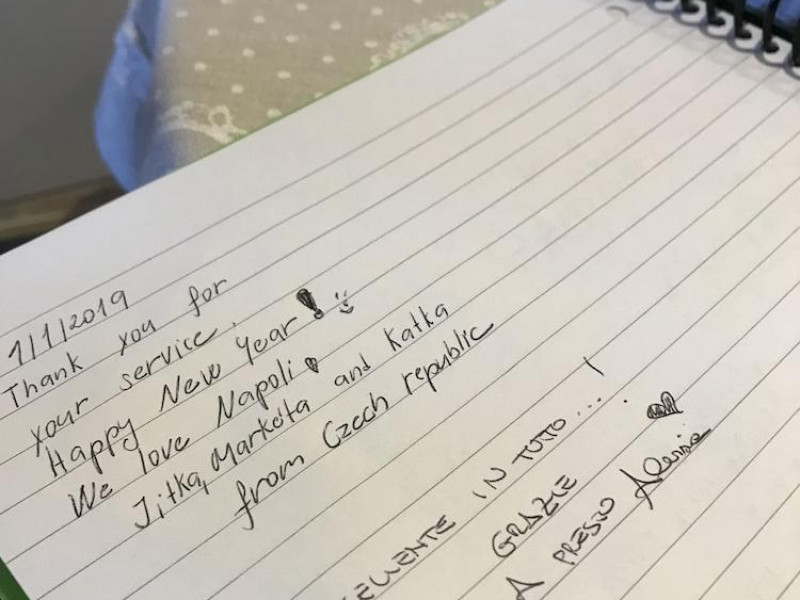 1/1/2019
Thank you for
your service.
Happy New Year! :)
We love Napoli ♥
Jitka, Markéta and Katka
from Czech republic
IN TUTTO...!
GRAZIE ♥
A PRESTO Alessia